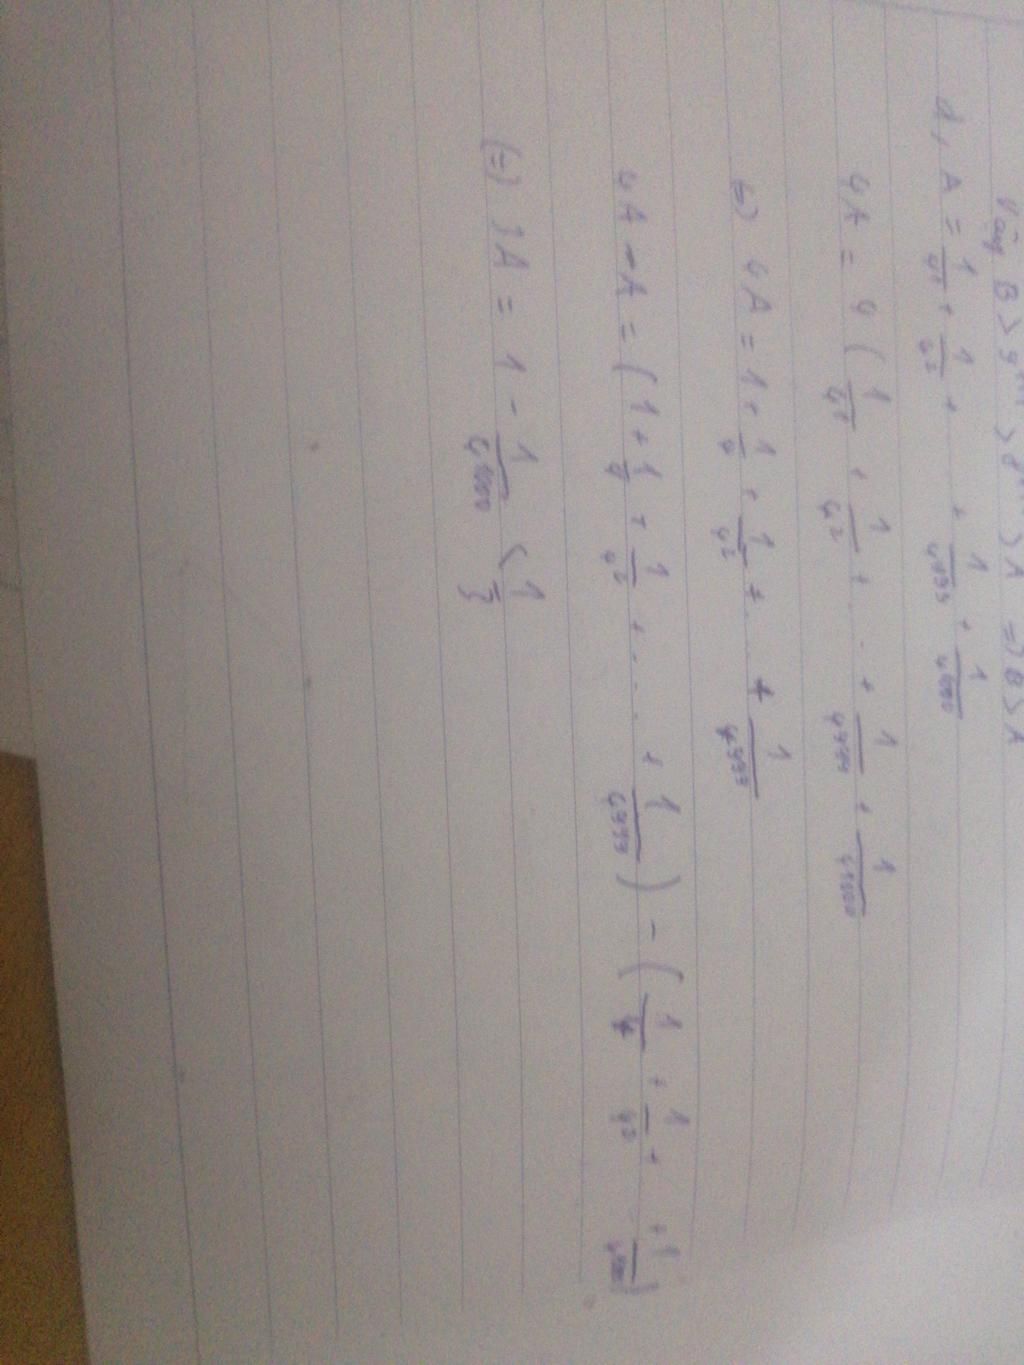 Vậy B > > > 1 => B > A
d, A = 1/4¹ + 1/4² + + 1/4⁹⁹⁹ + 1/4¹⁰⁰⁰
4A = 4 ( 1/4¹ + 1/4² + .. + 1/4⁹⁹⁹ + 1/4¹⁰⁰⁰
(=) 4A = 1 + 1/4 + 1/4² + . + 1/4⁹⁹⁹
4A - A = ( 1 + 1/4 + 1/4² + .... + 1/4⁹⁹⁹ ) - ( 1/4 + 1/4² + + 1/4¹⁰⁰⁰ ]
(=) 3A = 1 - 1/4¹⁰⁰⁰ < 1/3